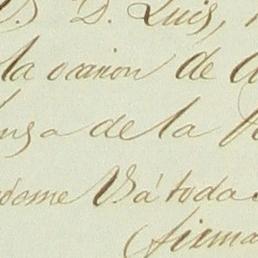 D. Luis,
la ocasion de
de la
dome V. á toda
firma